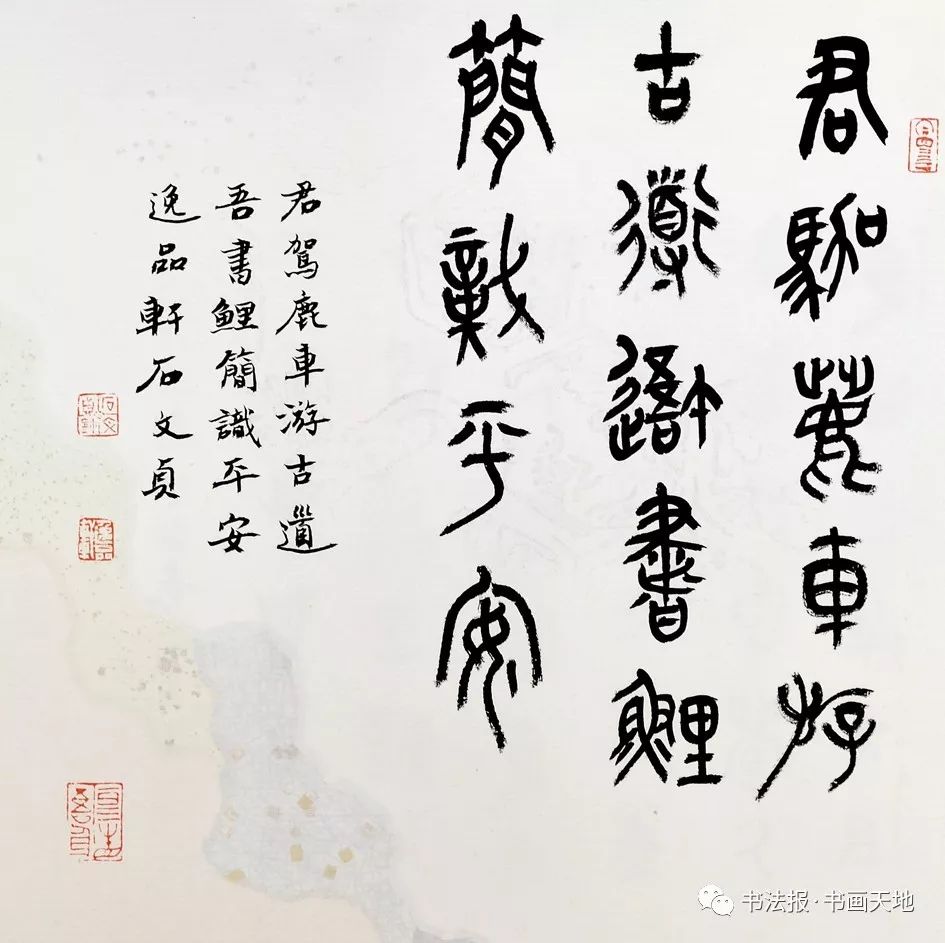 君駕鹿車斿
古道吾書鯉
簡戠平安
君駕鹿車游古道
吾書鯉簡識平安
逸品軒石文貞
书法报·书画天地